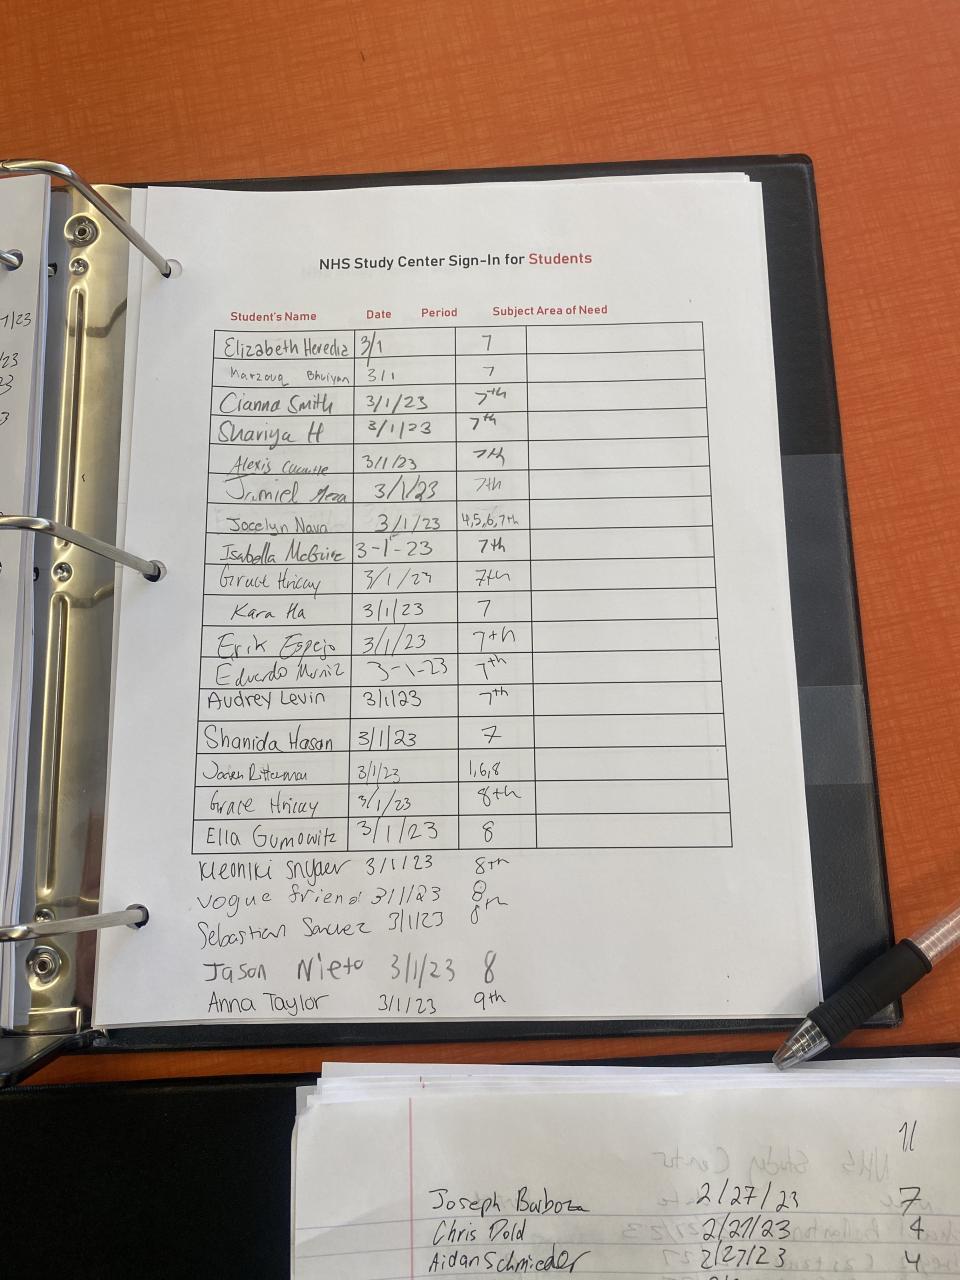 NHS Study Center Sign-In for Students
Student's Name Date Period Subject Area of Need
Elizabeth Heredia 3/1 7
Marzouq Bhuiyan 3/1 7
Cianna Smith 3/1/23 7th
Shariya H 3/1/23 7th
Alexis 3/1/23 7th
Jamiel Meza 3/1/23 7th
Jocelyn Nava 3/1/23 4,5,6,7th
Isabella McGuire 3-1-23 7th
Grace Hricay 3/1/23 7th
Kara Ha 3/1/23 7
Erik Espejo 3/1/23 7th
Eduardo Muniz 3-1-23 7th
Audrey Levin 3/1/23 7th
Shanida Hasan 3/1/23 7
Ritterman 3/1/23 1,6,8
Grace Hricay 3/1/23 8th
Ella Gumowitz 3/1/23 8
Kleoniki Snyder 3/1/23 8th
vogue friend 3/1/23 8th
Sebastian Sanchez 3/1/23 8
Jason Nieto 3/1/23 8
Anna Taylor 3/1/23 9th
1/23
/23
11
Joseph Barboza 2/27/23 7
Chris Dold 2/27/23 4
Aidan Schmieder 2/27/23 4